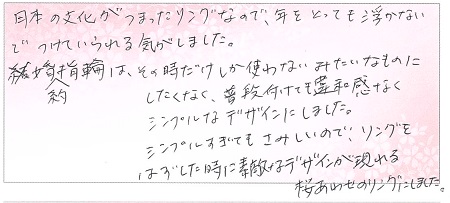 日本の文化がつまったリングなので、年をとっても浮かない
でつけていられる気がしました。
結婚約指輪は、その時だけしか使わないみたいなものに
したくなく、普段付けても違和感なく
シンプルなデザインにしました。
シンプルすぎてもさみしいので、リングを
はずした時に素敵なデザインが現れる
桜あわせのリングにしました。